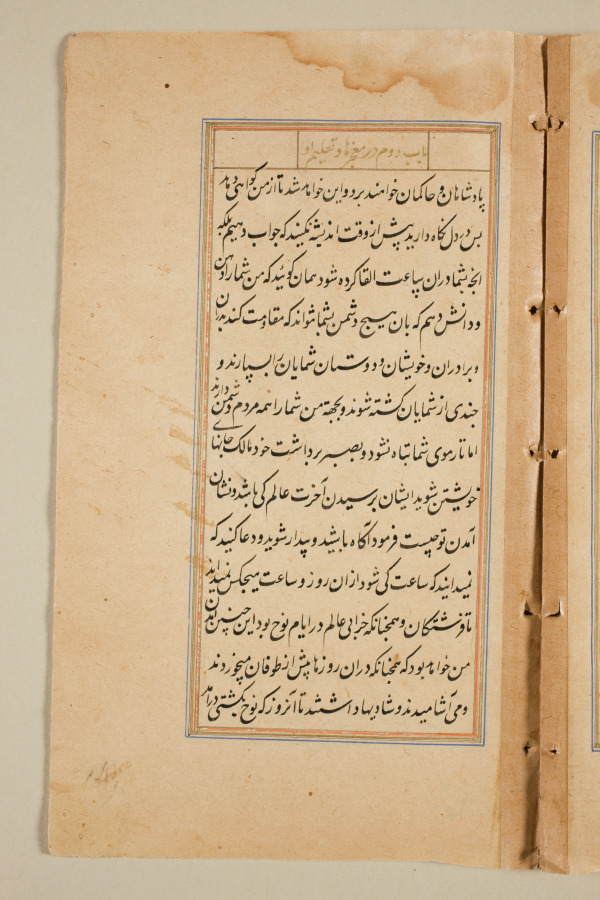 باب دوم در معجزها و تعلیم او
پادشاهان و حاکمان خواهند برد و این خواهد شد تا از من گواهی دهند
پس در دل نگاه دارید پیش از وقت اندیشه نکنید که جواب دهیم بلکه
انچه بشما دران ساعت القا کرده شود همان گوئید که من شما را دهن
و دانش دهم که بان هیچ دشمن بشما نتواند که مقاومت کند پدران
و برادران و خویشان و دوستان شمایان را بسپارند و
چندی از شمایان کشته شوند و بجهة من شما را همه مردم دشمن دارند
اما تار موی شما تباه نشود و بصبر برداشت خود مالک جانهای
خویشتن شوید ایشان پرسیدن آخرت عالم کی باشد و نشان
آمدن تو چیست فرمود آگاه باشید و بیدار شوید و دعا کنید که
نمیدانید که ساعت کی شود ازان روز و ساعت هیچکس نمیداند
تا فرشتگان و همچنانکه خرابی عالم در ایام نوح بود این چنین آمدن
من خواهد بود که همچنانکه دران روزها پیش از طوفان میخوردند
و می آشامیدند و شادیها داشتند تا آنروز که نوح بکشتی درامد